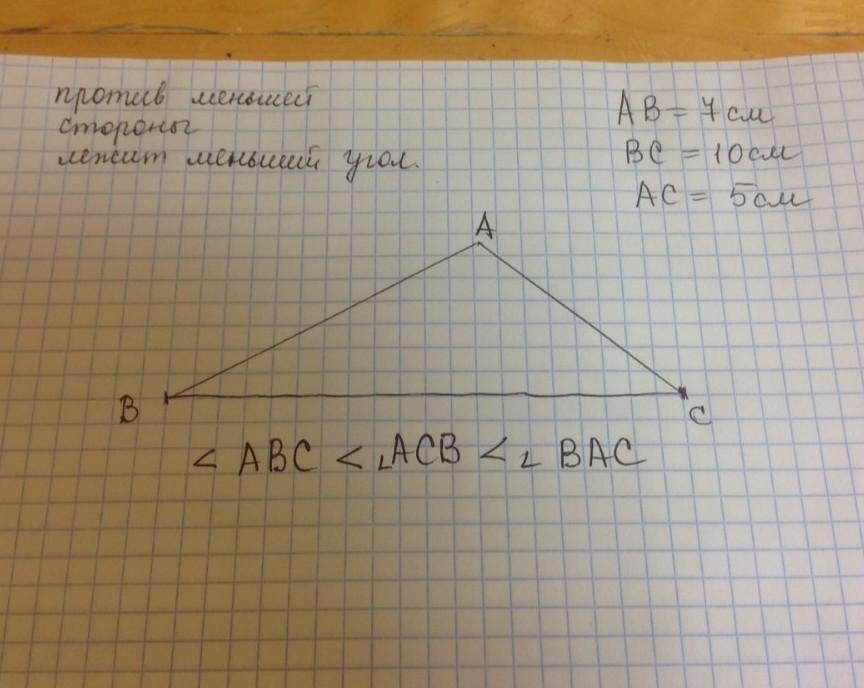 против меньшей
стороны
лежит меньший угол.
AB = 7 см
BC = 10 см
AC = 5 см
A
B
C
< ABC < ∠ACB < ∠ BAC